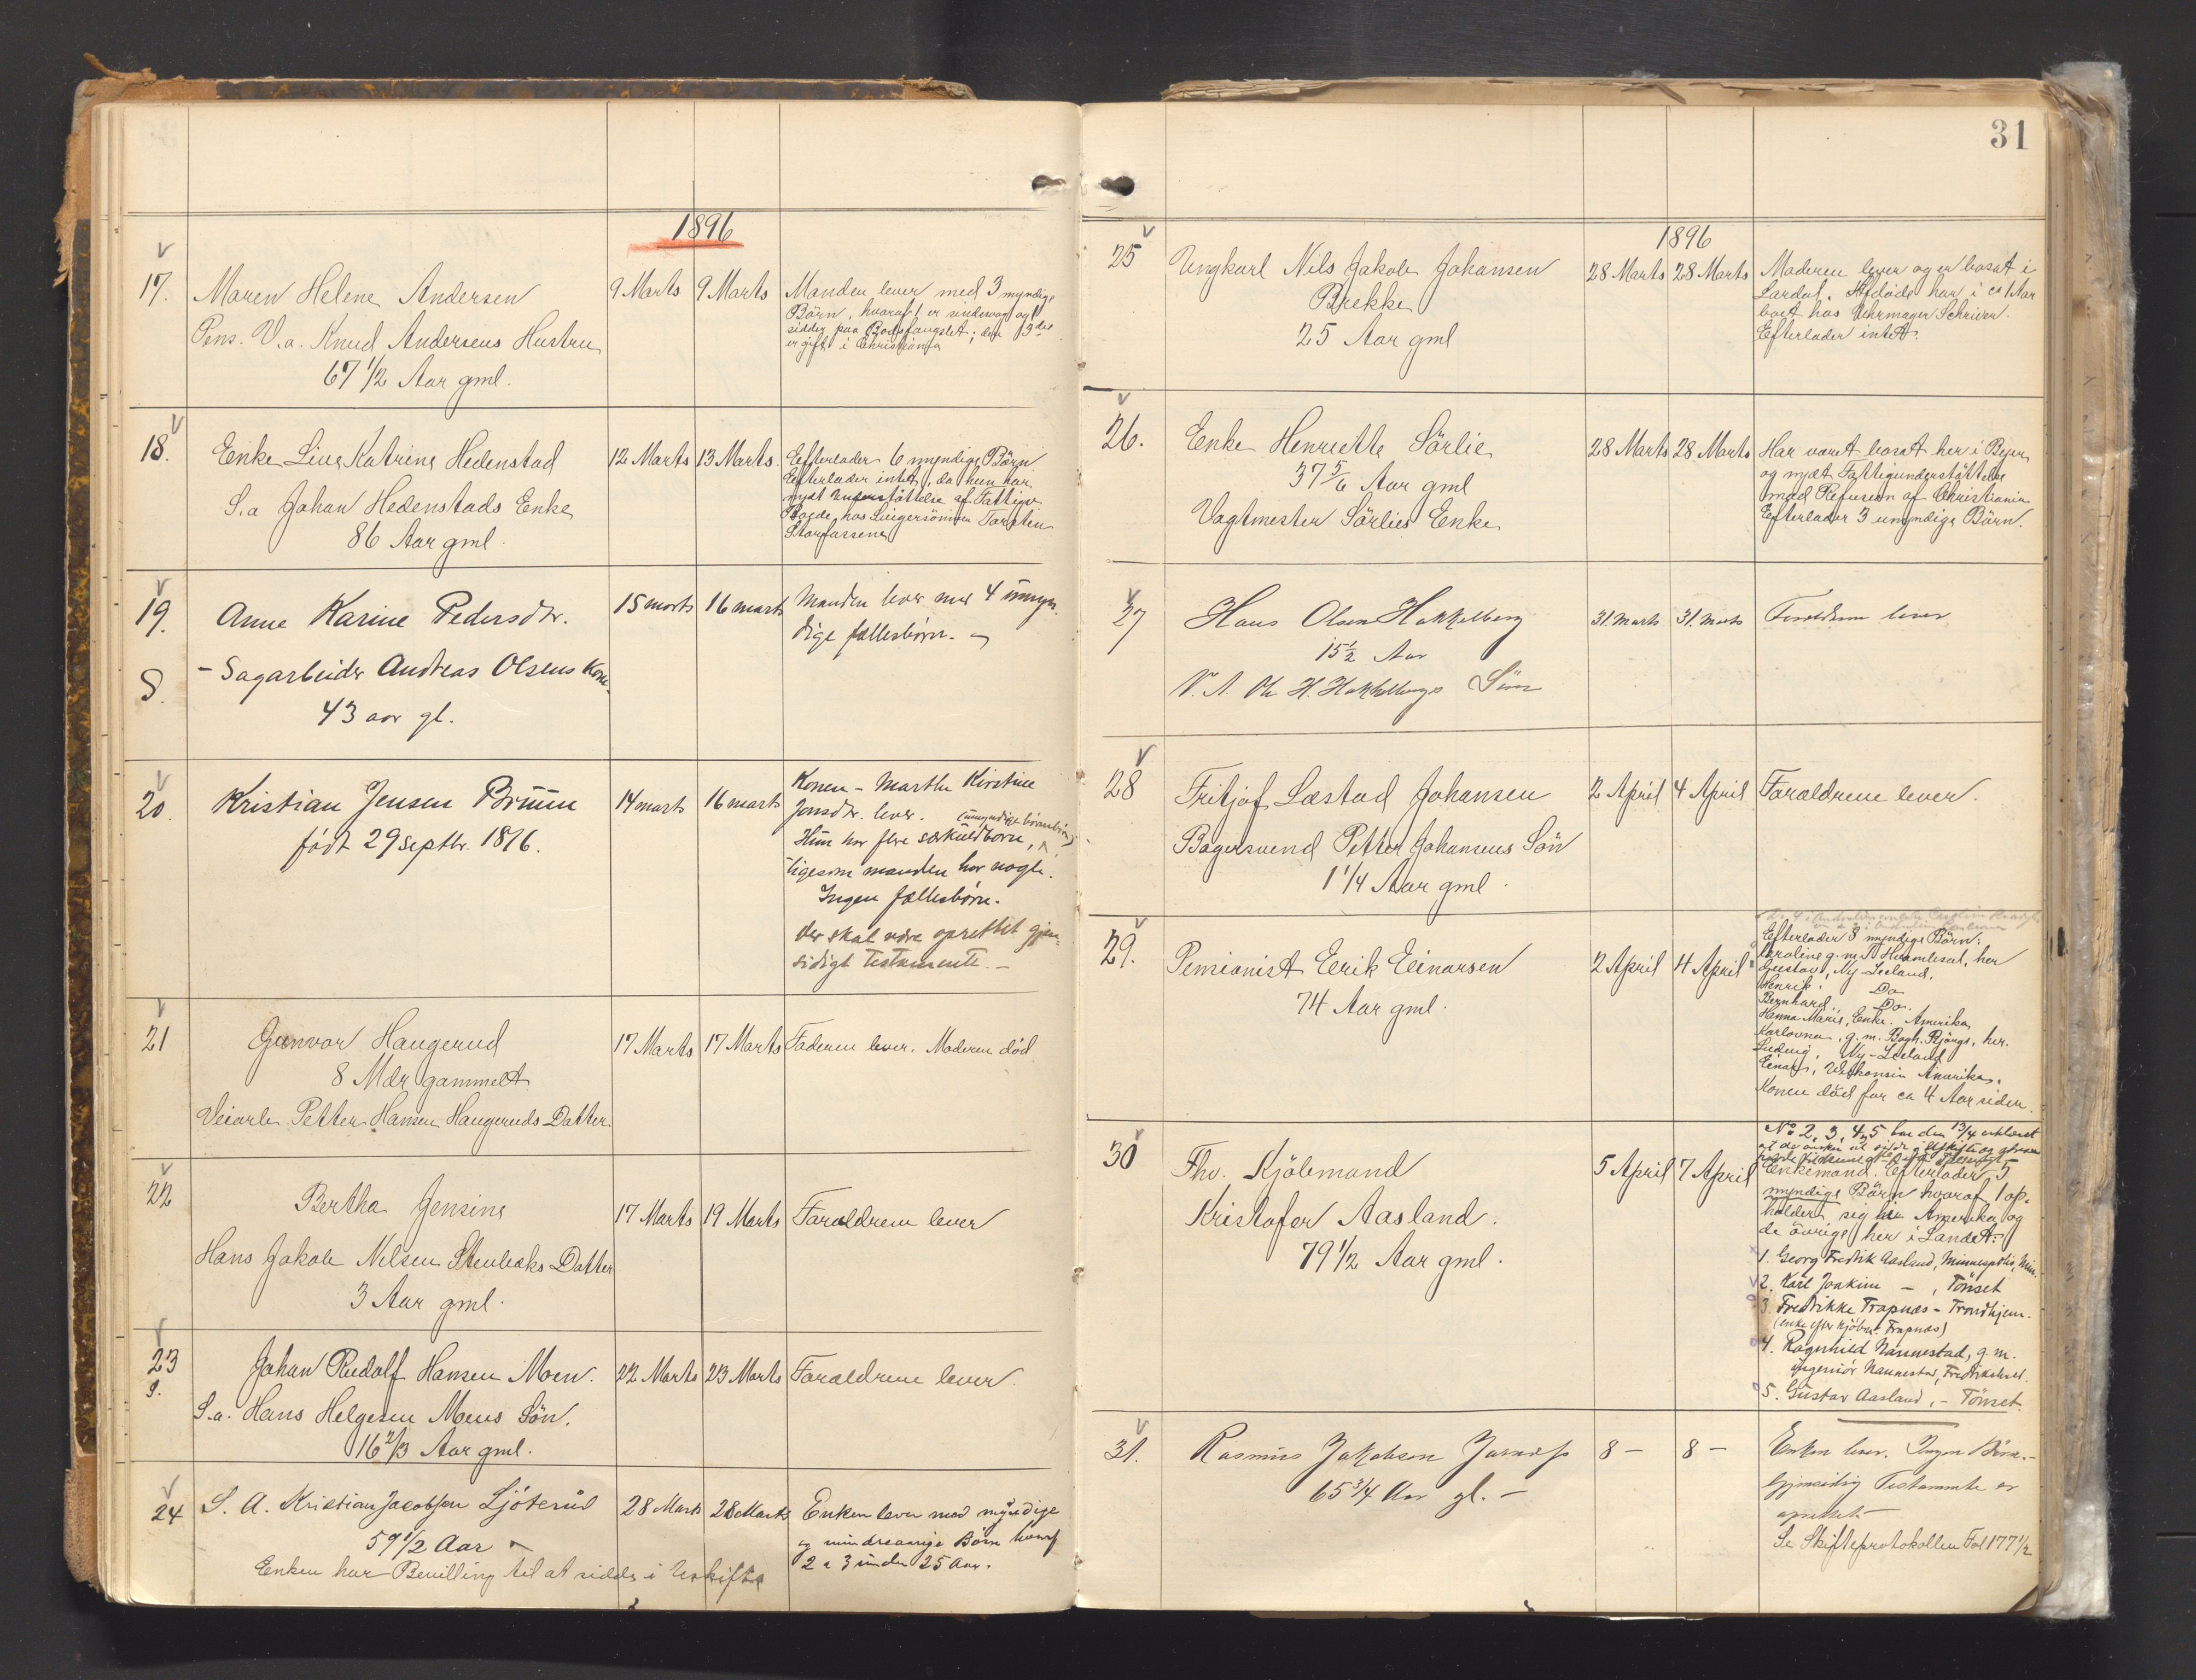 1896
17. Maren Helene Andersen 9 Marts 9 Marts Manden lever med 3 myndige
Börn, hvoraf 1 er
sidder paa Bodsfængslet; den 3die
er gift i Christiania
Pens. V.a. Knud Andersens Hustru
67 1/2 Aar gml.
18. Enke Line Katrine Hedenstad 12 Marts 13 Marts. Efterlader 6 myndige Börn
Efterlader intet, da hun har
nydt Understöttelse af Fattigv.
Boede hos Svigersönnen Torsten
S.a Johan Hedenstads Enke
86 Aar gml.
19. Anne Karine Pedersdtr. 15 marts 16 marts Manden lever med 4 umyn-
dige fællesbørn.
S. - Sagarbeider Andreas Olsens Kone
43 aar gl.
20. Kristian Jensen Bruun 14 marts 16 marts Konen - Marthe Kirstine
Jensdtr. lever.
Hun har flere særkuldbørn,
ligesom manden har nogle.
Ingen fællesbørn.
Der skal være oprettet gjen-
sidigt testamente. -
født 29 Septbr. 1816.
21 Gunvor Haugerud 17 Marts 17 Marts Faderen lever. Moderen död
8 Mdr gammelt
Veiarb. Petter Hansen Haugeruds Datter
22 Bertha Jensine 17 Marts 19 Marts Foraldrene lever
Hans Jakob Nilsen Stenbæks Datter
3 Aar gml.
23 S. Johan Rudolf Hansen Moen. 22 Marts 23 Marts Foraldrene lever
S.a. Hans Helgesen Moens Sön.
16 2/3 Aar gml.
24 S. A. Kristian Jacobsen Ljöterud 28 Marts 28 Marts Enken lever med myndige
og mindreaarige Børn hvoraf
2 a 3 under 25 Aar.
59 1/2 Aar
Enken har Bevilling til at sidde i Uskiftet
31
1896
25 Ungkarl Nils Jakob Johansen 28 Marts 28 Marts Moderen lever og er bosat i
Lardal. Afdöde har i ca 1 Aar
boet hos Uhrmager Schriver.
Efterlader intet.
Brekke
25 Aar gml
26. Enke Henriette Sörlie 28 Marts 28 Marts Har været bosat her i Byen
og nydt Fattigunderstöttelse
mod Refusion af Christiania
Efterlader 3 umyndige Börn.
37 5/6 Aar gml
Vagtmester Sörlies Enke
27 Hans Olsen Hakkelberg 31. Marts 31. Marts Forældrene lever
15 1/2 Aar
V. A. Ole H. Hakkelbergs Søn
28 Fritjof Læstad Johansen 2 April 4 April Foraldrene lever.
Bagersvend Petter Johansens Sön
1 1/4 Aar gml.
29. Pensionist Eerik Einarsen 2 April 4 April Efterlader 8 myndige Börn:
Karoline g. m. her
Gustav, Ny-Seeland.
Henrik. Do
Bernhard. Do.
Hanna Marie, Enke. Amerika
Karlovna, g. m. Bagh. her.
Ludvig, Ny-Seeland
Einar, Wiskonsin Amerika.
Konen död for ca 4 Aar siden.
74 Aar gml.
30 Fhv. Kjöbmand 5 April 7 April No 2, 3, 4, 5 har den 13/4 erklæret
Enkemand. Efterlader 5
myndige Börn hvoraf 1 op-
holder sig i Amerika og
de övrige her i Landet:
1. Georg Fredrik Aasland, Minneapolis, Min.
2. Karl Joakim - , Tönset
3. Fredrikke Trapnæs - Trondhjem.
(enke efter Kjöbm. Trapnæs)
4. Ragnhild Nannestad, g. m.
Ingeniör Nannestad, Fredrikshald.
5. Gustav Aasland, - Tönset.
Kristofer Aasland.
79 1/2 Aar gml.
31. Rasmus Jakobsen 8 - 8 - Enken lever. Ingen Børn. -
Gjensidig Testamente er
oprettet
Se Skifteprotokollen Fol 177 1/2
65 3/4 Aar gl. -